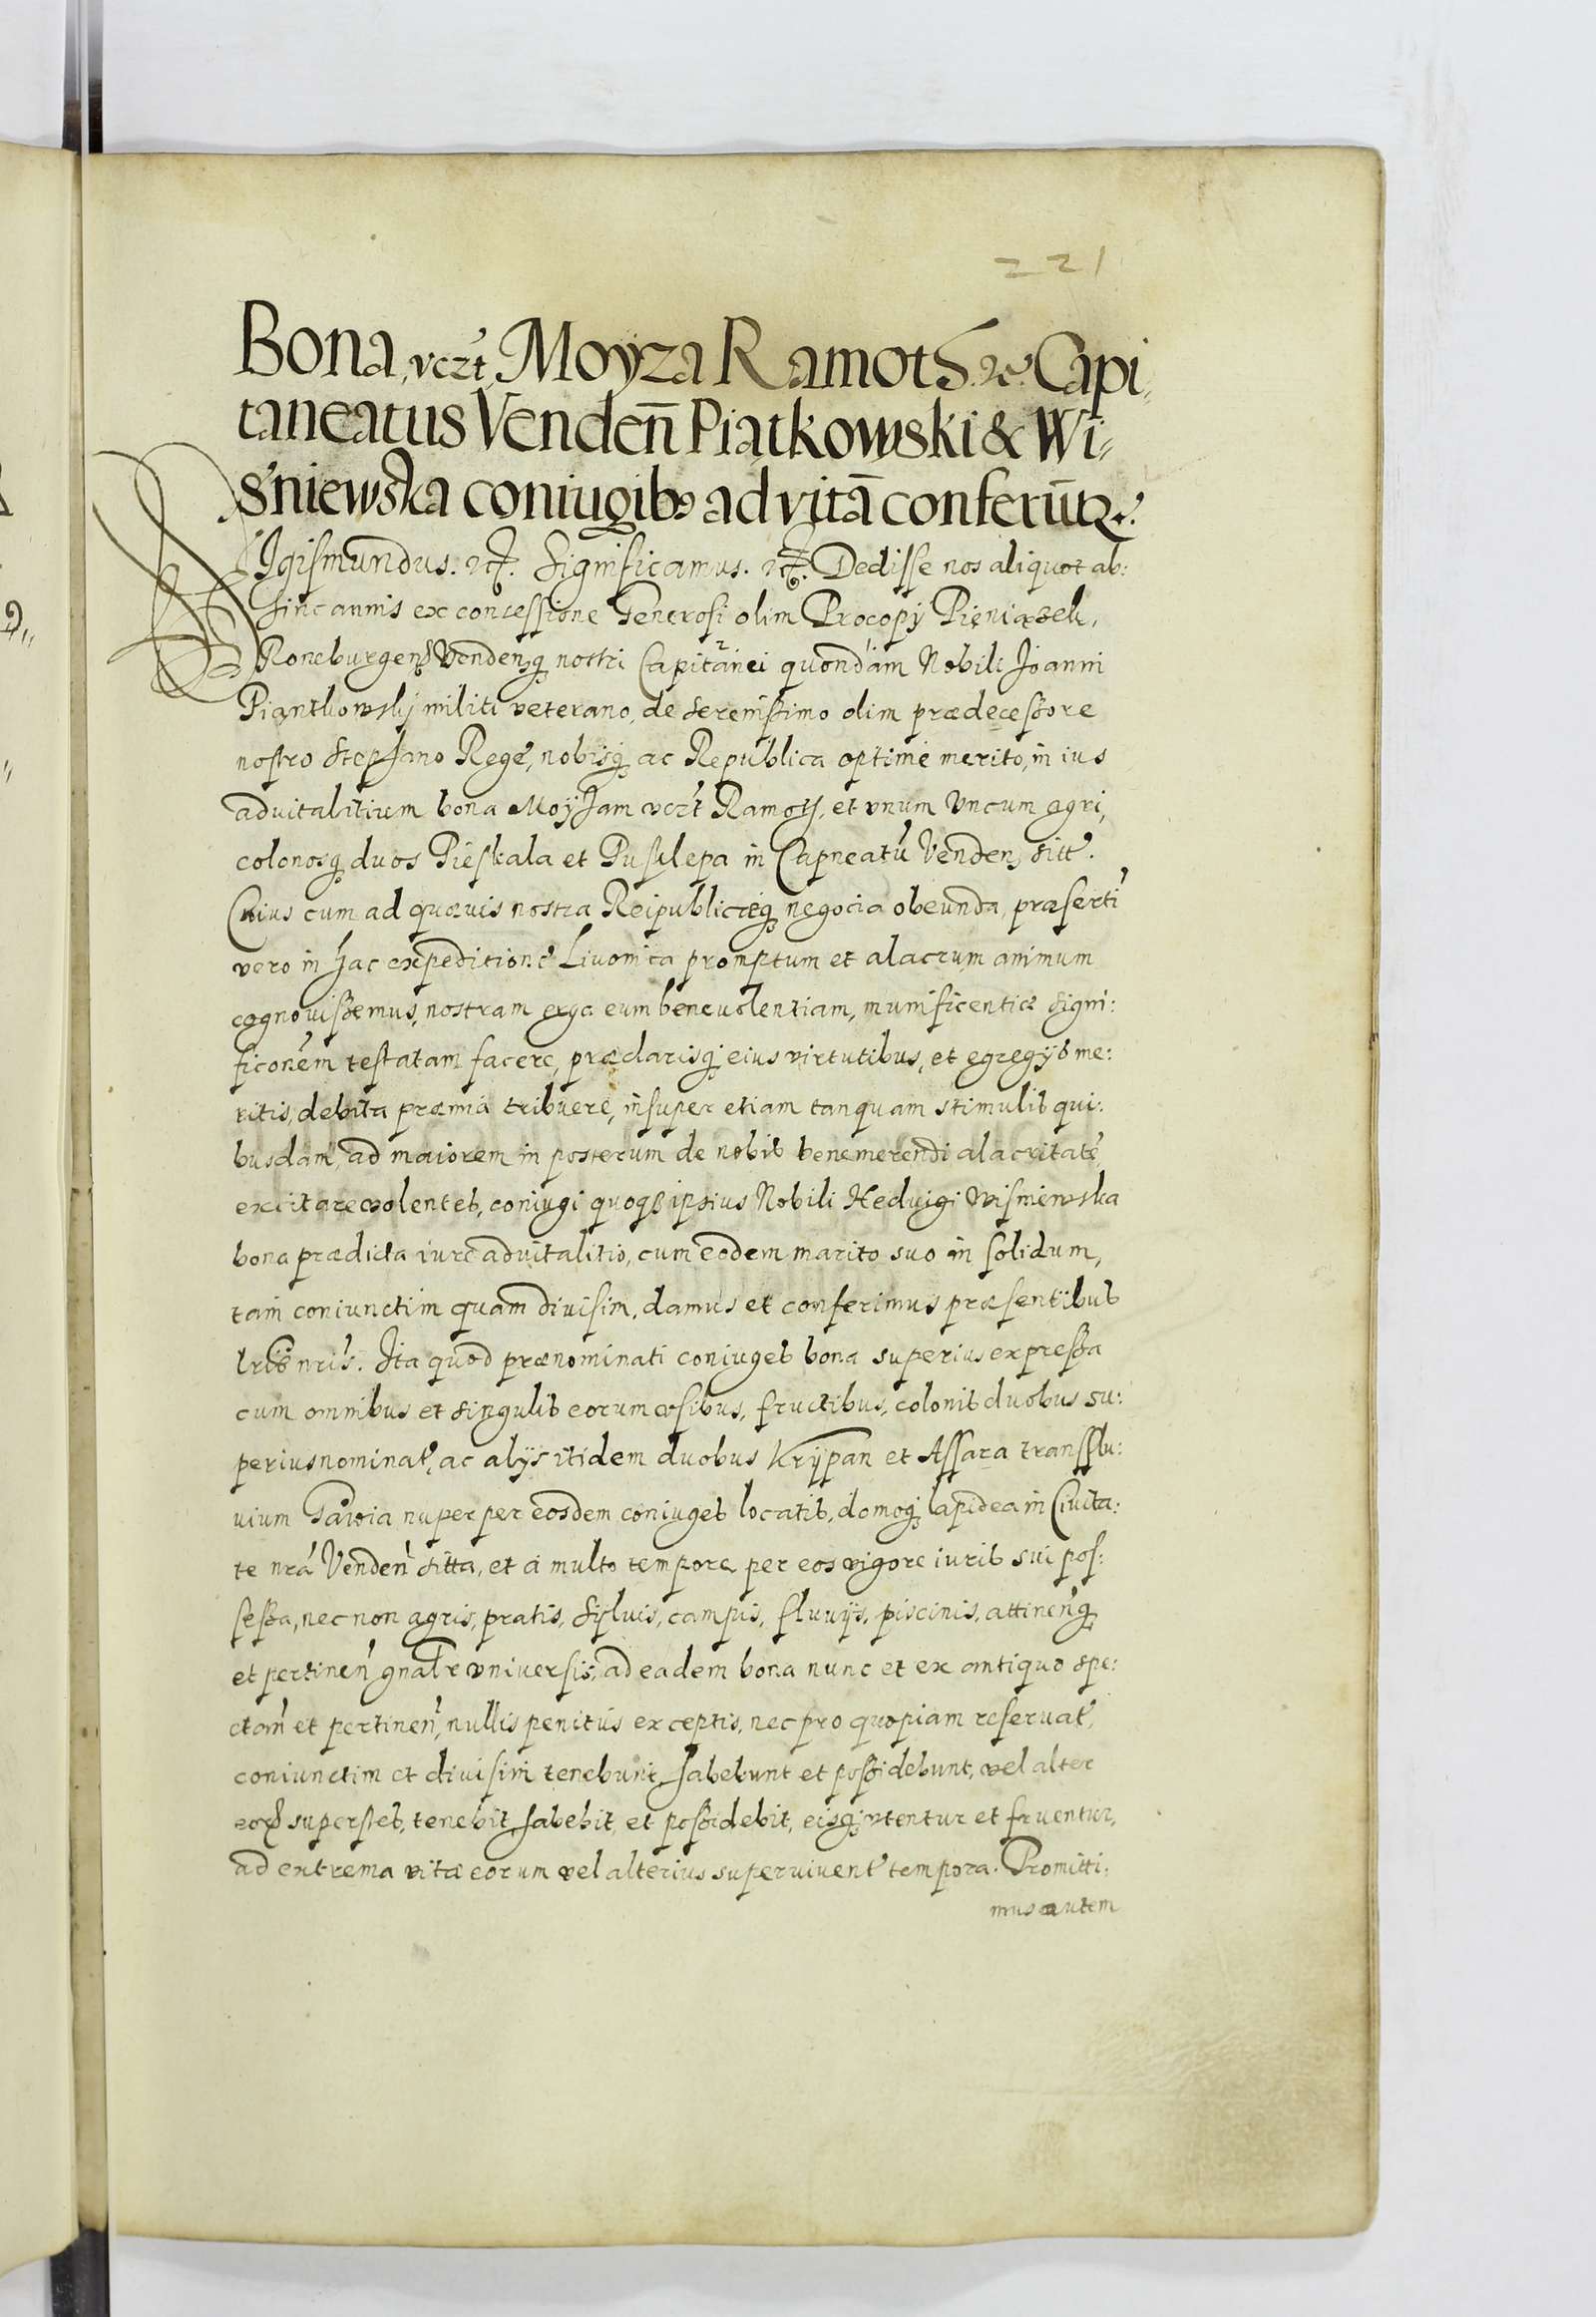 221
Bona, vczt, Moyza Ramoth. &c. Capi,,
taneatus Venden̄ Piątkowski & Wi,,
śniewska coniugibꝰ ad vitā conferūtꝛ.
SIgismundus. etc. Significamus. etc. Dedisse nos aliquot ab:
hinc annis ex concessione Generosi olim Procopÿ Pieniązek,
Roneburgen Vendenq nostri Capitanei quondam Nobili Joanni
Piantkowsky militi veterano, de serenissimo olim prædecessore
nostro Stephano Rege, nobisq ac Republica optime merito, in ius
advitalitium bona Moyzam vczt Ramoth, et vnum Vncum agri,
colonosq duos Pieskala et Pusklepa in Capneatu Venden sitt.
Cuius cum ad quævis nostra Reipublicæq negocia obeunda, præserti
vero in hac expeditione Livonica promptum et alacrum animum
cognovissemus, nostram erga eum benevolentiam, munificentiæ signi:
ficonem testatam facere, præclarisq eius virtutibus, et egregÿs me:
ritis, debita præmia tribuere, insuper etiam tanquam stimulis qui:
busdam, ad maiorem in posterum de nobis benemerendi alacritate
excitare volentes, coniugi quoq ipsius Nobili Hedvigi Wisniewska
bona prædicta iure advitalitio, cum eodem marito suo in solidum,
tam coniunctim quam divisim, damus et conferimus præsentibus
lris nris. Ita quod prænominati coniuges bona superius expressa
cum omnibus et singulis eorum vsibus, fructibus, colonis duobus su:
perius nominat, ac alÿs itidem duobus Krÿpan et Assara transflu:
vium Gawia nuper per eosdem coniuges locatis, domoq lapidea in Civita:
te nrá Venden sitta, et a multo tempore per eos vigore iuris sui pos:
sessa, nec non agris, pratis, sylvis, campis, fluvÿs, piscinis, attinenq
et pertinen gnalr vniversis, ad eadem bona nunc et ex antiquo spe:
ctam et pertinen, nullis penitus exceptis, nec pro quopiam reservat,
coniunctim et divisim tenebunt, habebunt et possidebunt, vel alter
eorꝫ superstes, tenebit, habebit, et possidebit, eisq vtentur et fruentur,
ad extrema vitæ eorum vel alterius supervivent tempora. Promitti:
mus autem